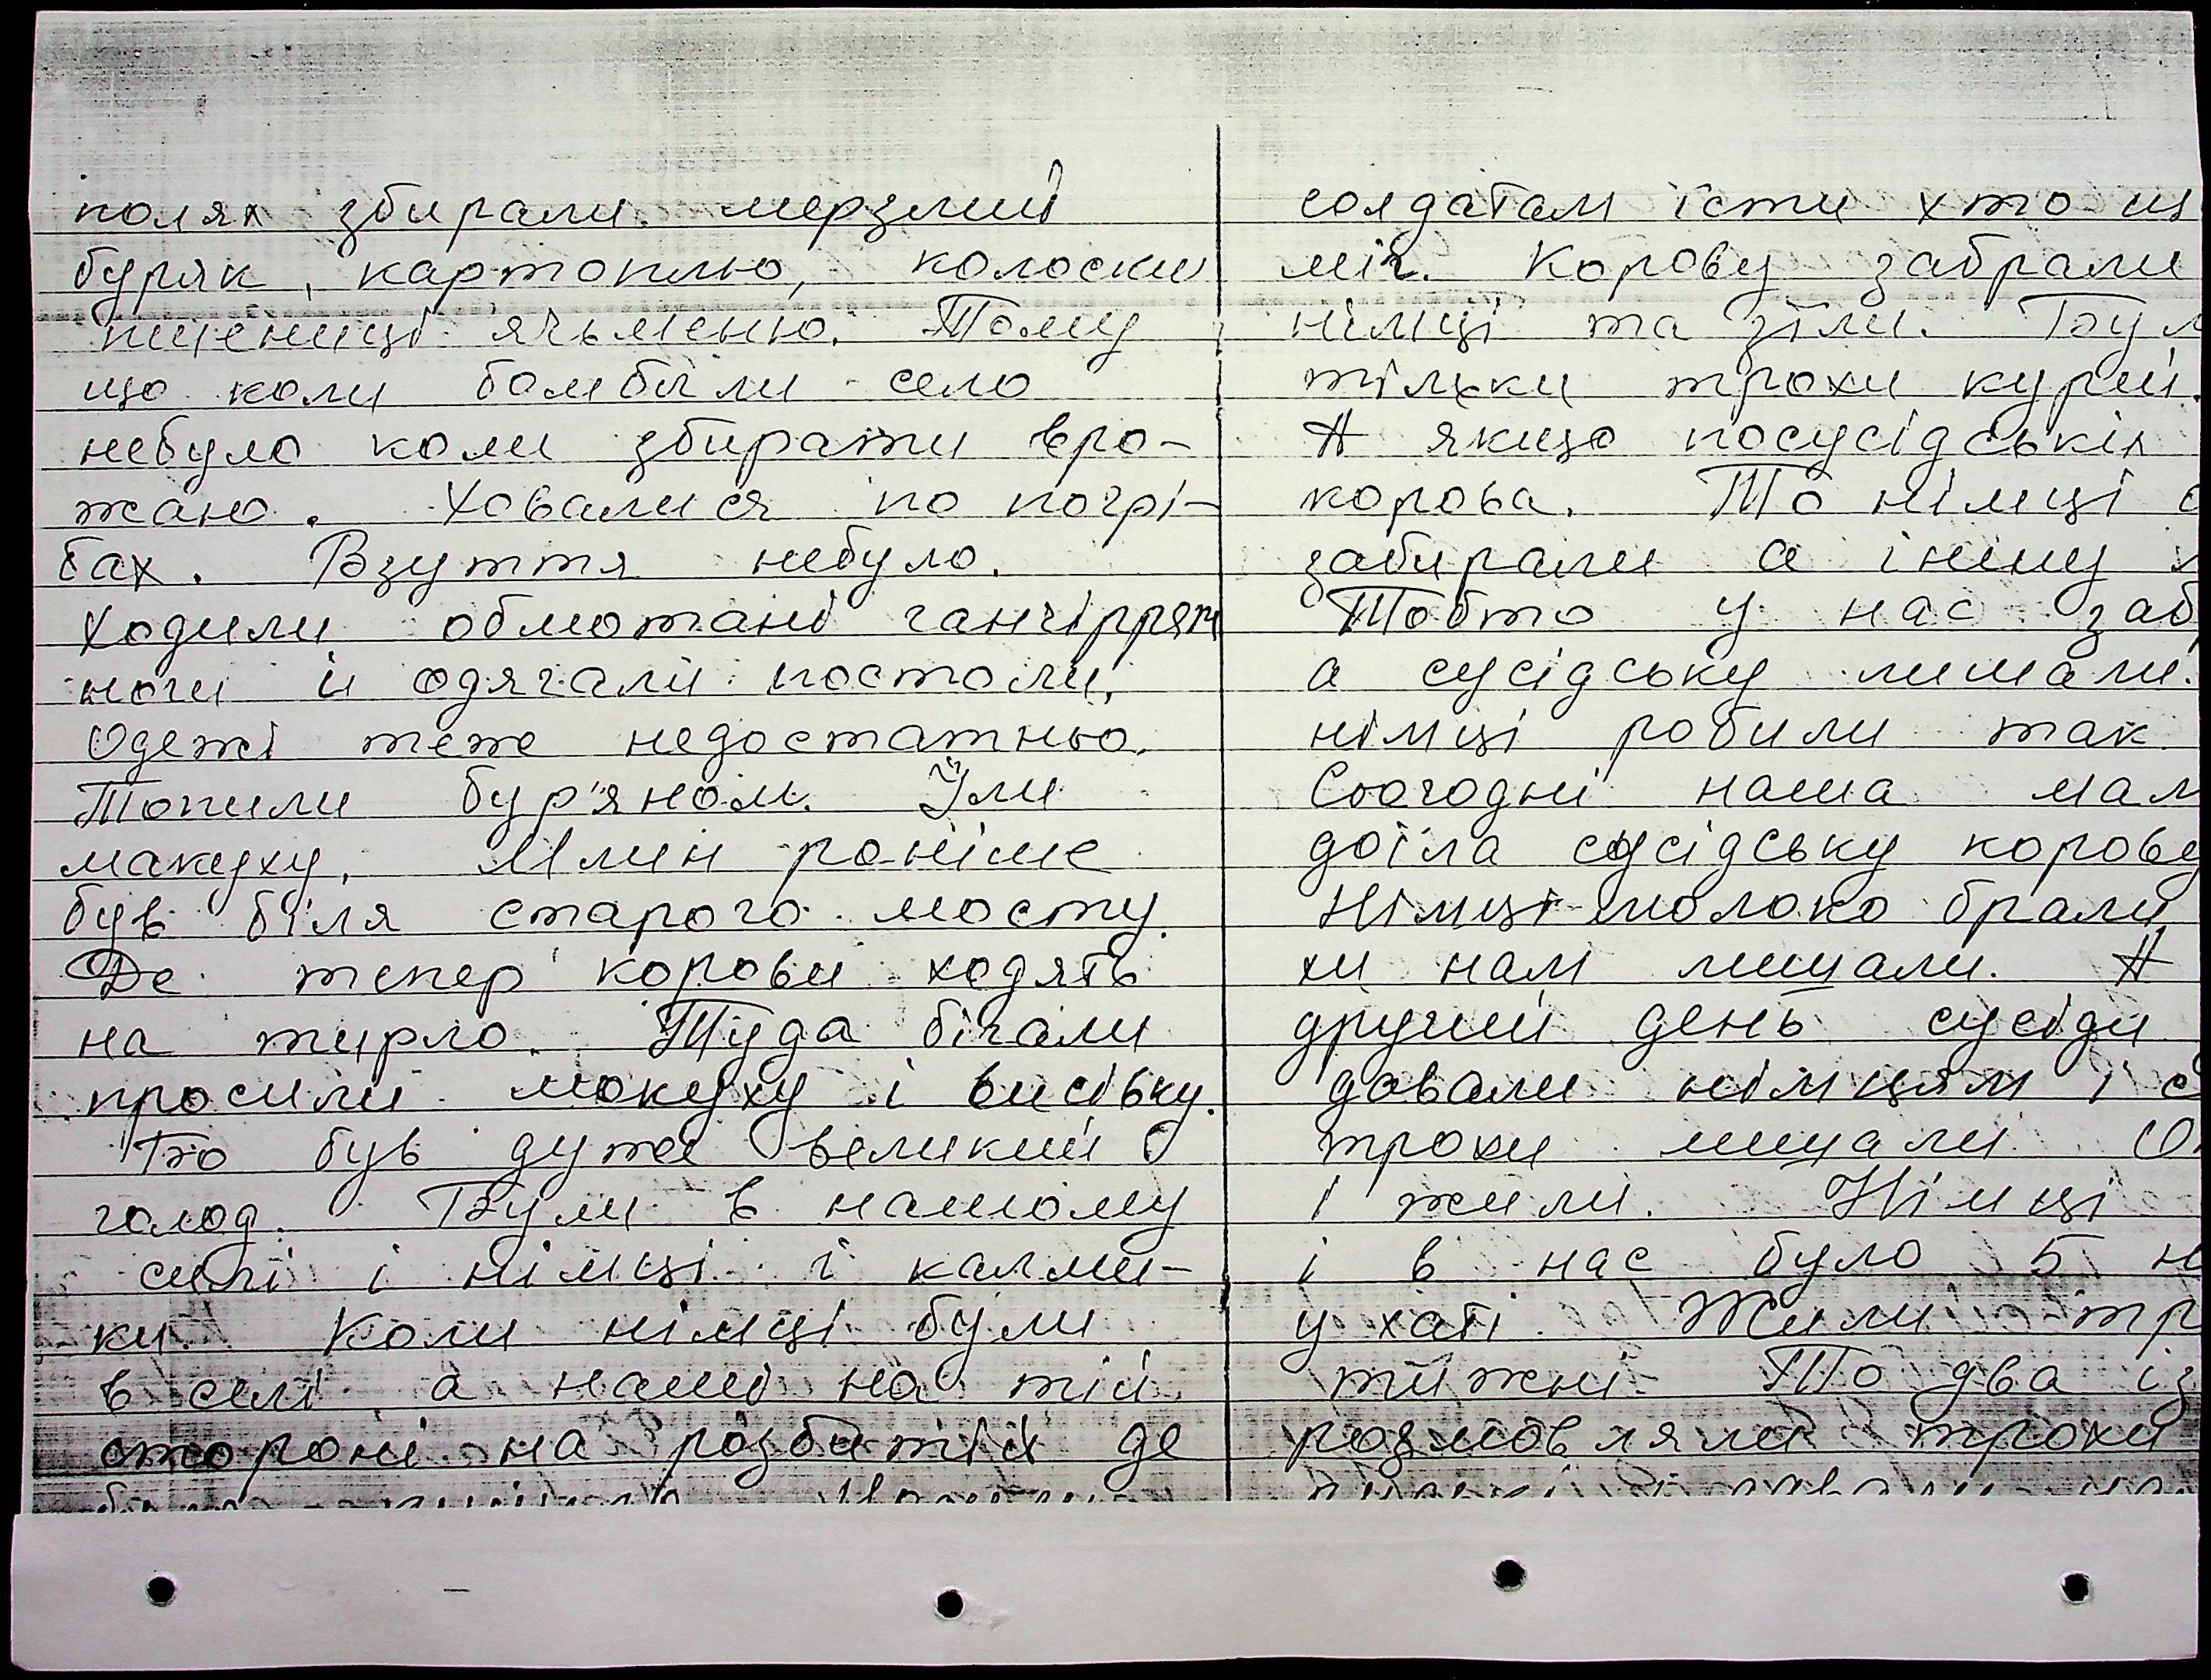 полях збирали мерзлий
буряк, картоплю, колоски
пшениці ячьменю. Тому
що коли бомбіли село
небуло коли збирати вро-
жаю. Ховалися по погрі-
бах. Взуття небуло.
Ходили обмотані ганчіррям
ноги й одягали постоли,
Одежі теже недостатньо.
Топили бур'яном. Їли
макуху, Млин раніше
був біля старого мосту.
Де тепер корови ходять
на тирло. Туда бігали
просили мокуху і висівку.
Бо був дуже великий
голод. Були в нашому
силі і німці і калми-
ки. Коли німці були
в селі а наші на тій
стороні на розбитій де
солдатам їсти хто
міг. Корову забрали
німці та зїли.
тільки трохи курей.
А якщо посусідських
корова. То німці
забирали а іншу
Тобто у нас
а сусідську лишали.
німці робили так
Сьогодні наша
доїла сусідську корову
Німці молоко брали
хи нам лишали. А
другий день сусіди
довали німцям і
трохи лишали
і жили. Німці
і в нас було 5
у хаті. Жили
тижні То два
розмовляли трохи